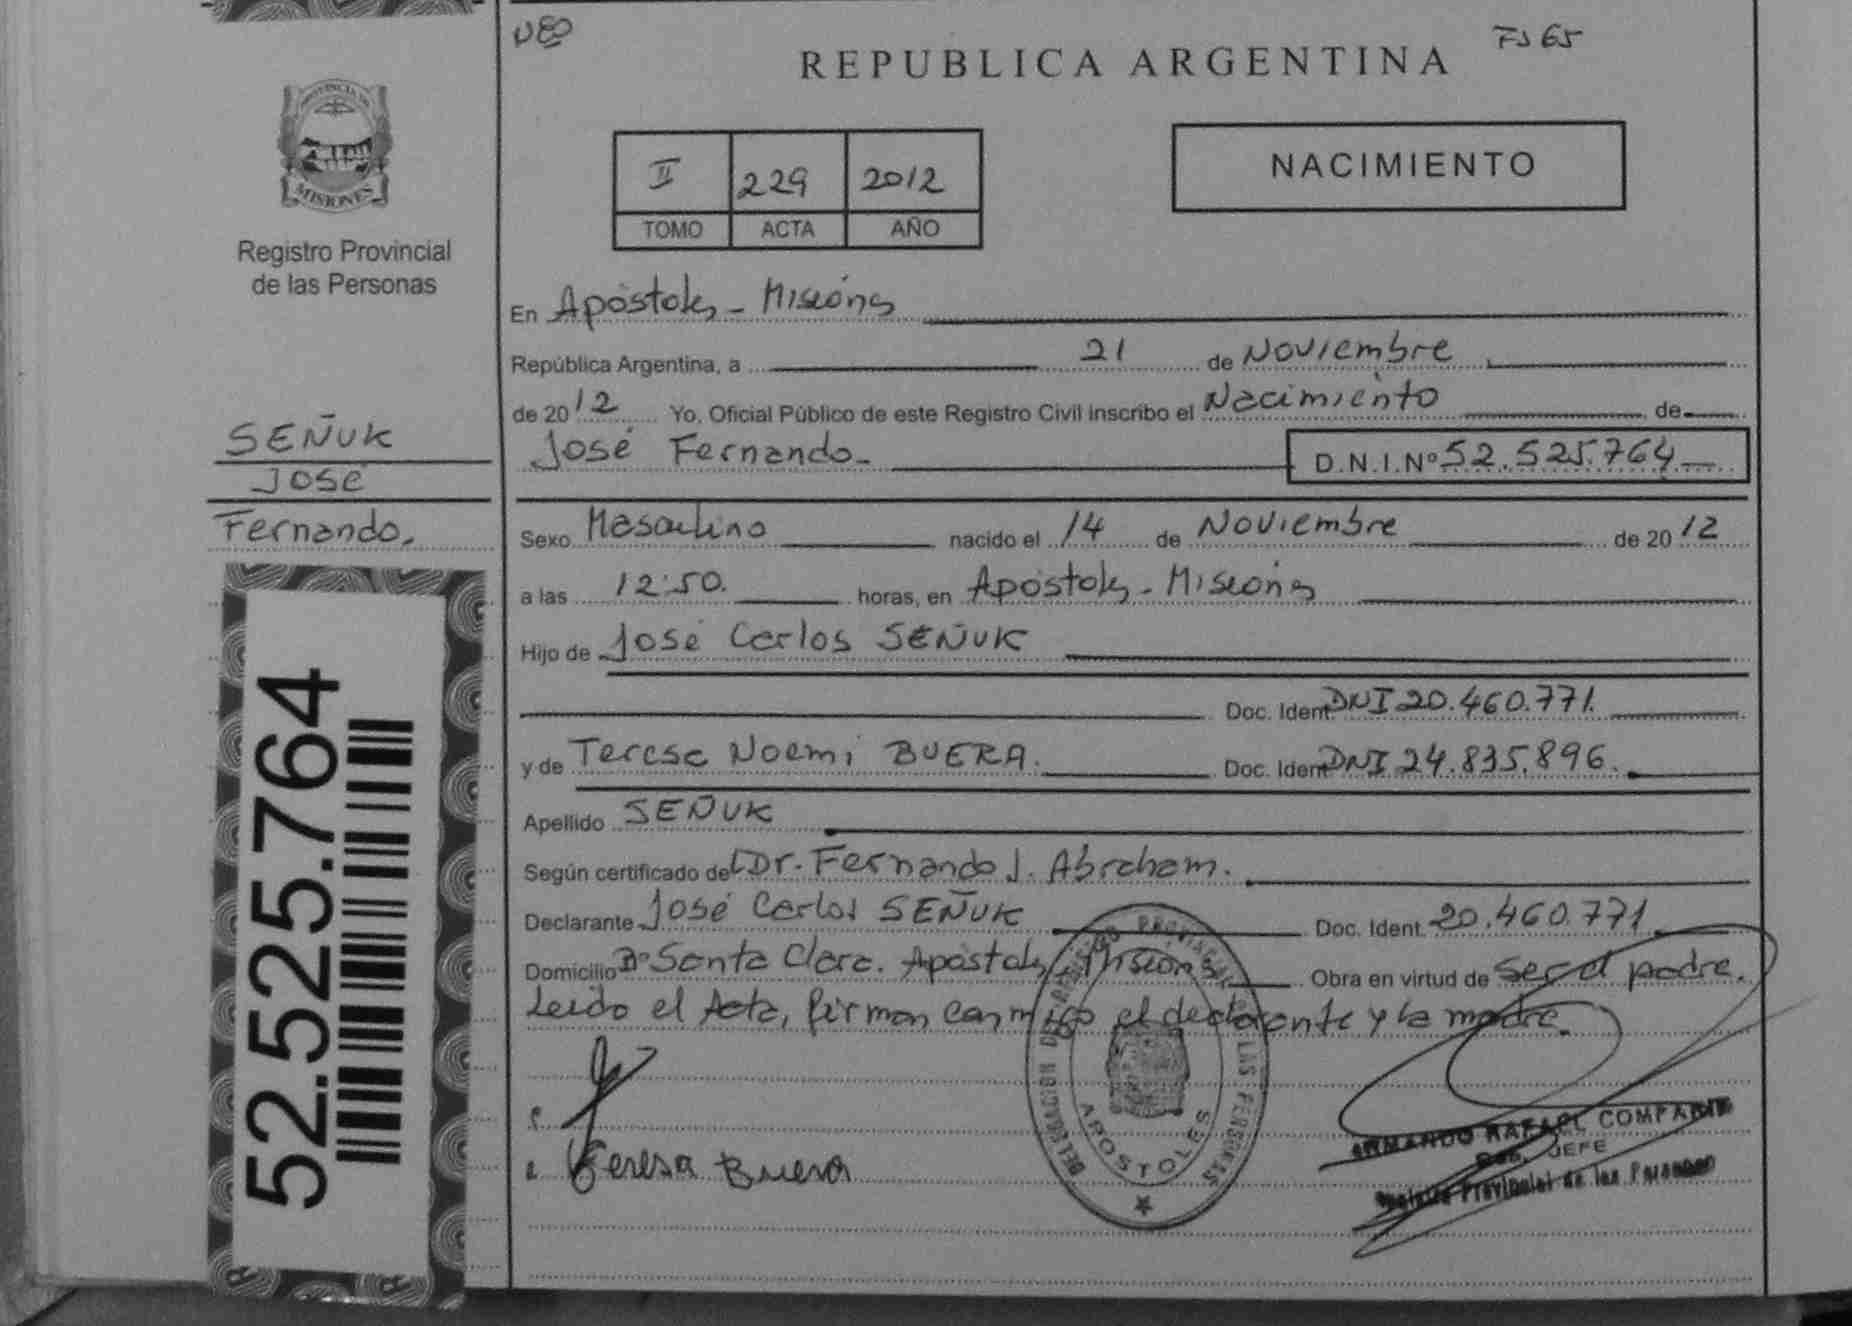 FS 65
REPUBLICA ARGENTINA
PROVINCIA DE
MISIONES
Registro Provincial
de las Personas
II 229 2012
TOMO ACTA AÑO
NACIMIENTO
En Apóstoles - Misiones
República Argentina, a 21 de Noviembre
de 2012 Yo, Oficial Público de este Registro Civil inscribo el Nacimiento de
José Fernando. D.N.I.Nº 52.525.764
SEÑUK
José
Fernando.
Sexo Masculino nacido el 14 de Noviembre de 2012
a las 12:50. horas, en Apóstoles - Misiones
Hijo de José Carlos SEÑUK
Doc. Ident. DNI 20.460.771.
y de Teresa Noemi BUERA. Doc. Ident. DNI 24.835.896.
Apellido SEÑUK
Según certificado del Dr. Fernando J. Abraham.
Declarante José Carlos SEÑUK Doc. Ident. 20.460.771
Domicilio Bº Santa Clara. Apóstoles, Misiones Obra en virtud de ser el padre.
Leido el Acta, firman conmigo el declarante y la madre.
Teresa Buera
52.525.764
DELEGACION DEL REGISTRO PROVINCIAL DE LAS PERSONAS
APOSTOLES
ARMANDO RAFAEL
JEFE
Registro Provincial de las Personas